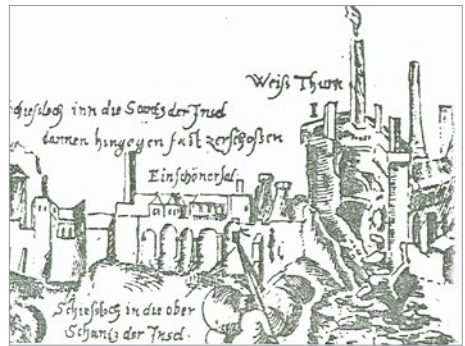 Weiß Thurn
schiessloch inn die Scantz der Insel
dannen hingegen fast zerschoßen
Ein schöner sal
Schiessloch in die ober
Schantz der Insel.